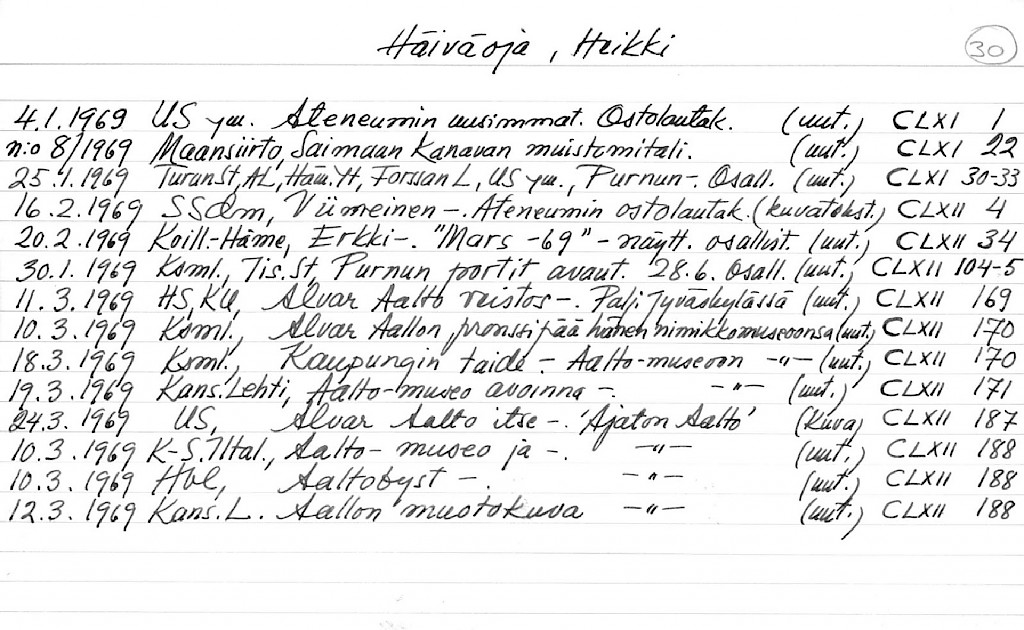 Häiväoja, Heikki 30
4.1.1969 US ym. Ateneumin uusimmat. Ostolautak. (uut.) CLXI 1
n:o 8/1969 Maansiirto, Saimaan Kanavan muistomitali. (uut.) CLXI 22
25.1.1969 TurunSt, AL, Häm.YH, Forssan L, US ym., Purnun-. Osall. (uut.) CLXI 30-33
16.2.1969 SSdm, Viimeinen -. Ateneumin ostolautak. (kuvatekst.) CLXII 4
20.2.1969 Koill.-Häme, Erkki-. "Mars -69" - näytt. osallist. (uut.) CLXII 34
30.1.1969 Ksml., Tis.St, Purnun portit avaut. 28.6. Osall. (uut.) CLXII 104-5
11.3.1969 HS, KU, Alvar Aalto veistos -. Palj. Jyväskylässä (uut.) CLXII 169
10.3.1969 Ksml., Alvar Aallon pronssipää hänen nimikkomuseoonsa (uut.) CLXII 170
18.3.1969 Ksml., Kaupungin taide - Aalto-museoon -"- (uut.) CLXII 170
19.3.1969 Kans.Lehti, Aalto-museo avoinna -. -"- (uut.) CLXII 171
24.3.1969 US, Alvar Aalto itse -. 'Ajaton Aalto' (kuva) CLXII 187
10.3.1969 K-S.Iltal., Aalto-museo ja -. -"- (uut.) CLXII 188
10.3.1969 Hbl, Aaltobyst -. -"- (uut.) CLXII 188
12.3.1969 Kans.L. Aallon muotokuva -"- (uut.) CLXII 188